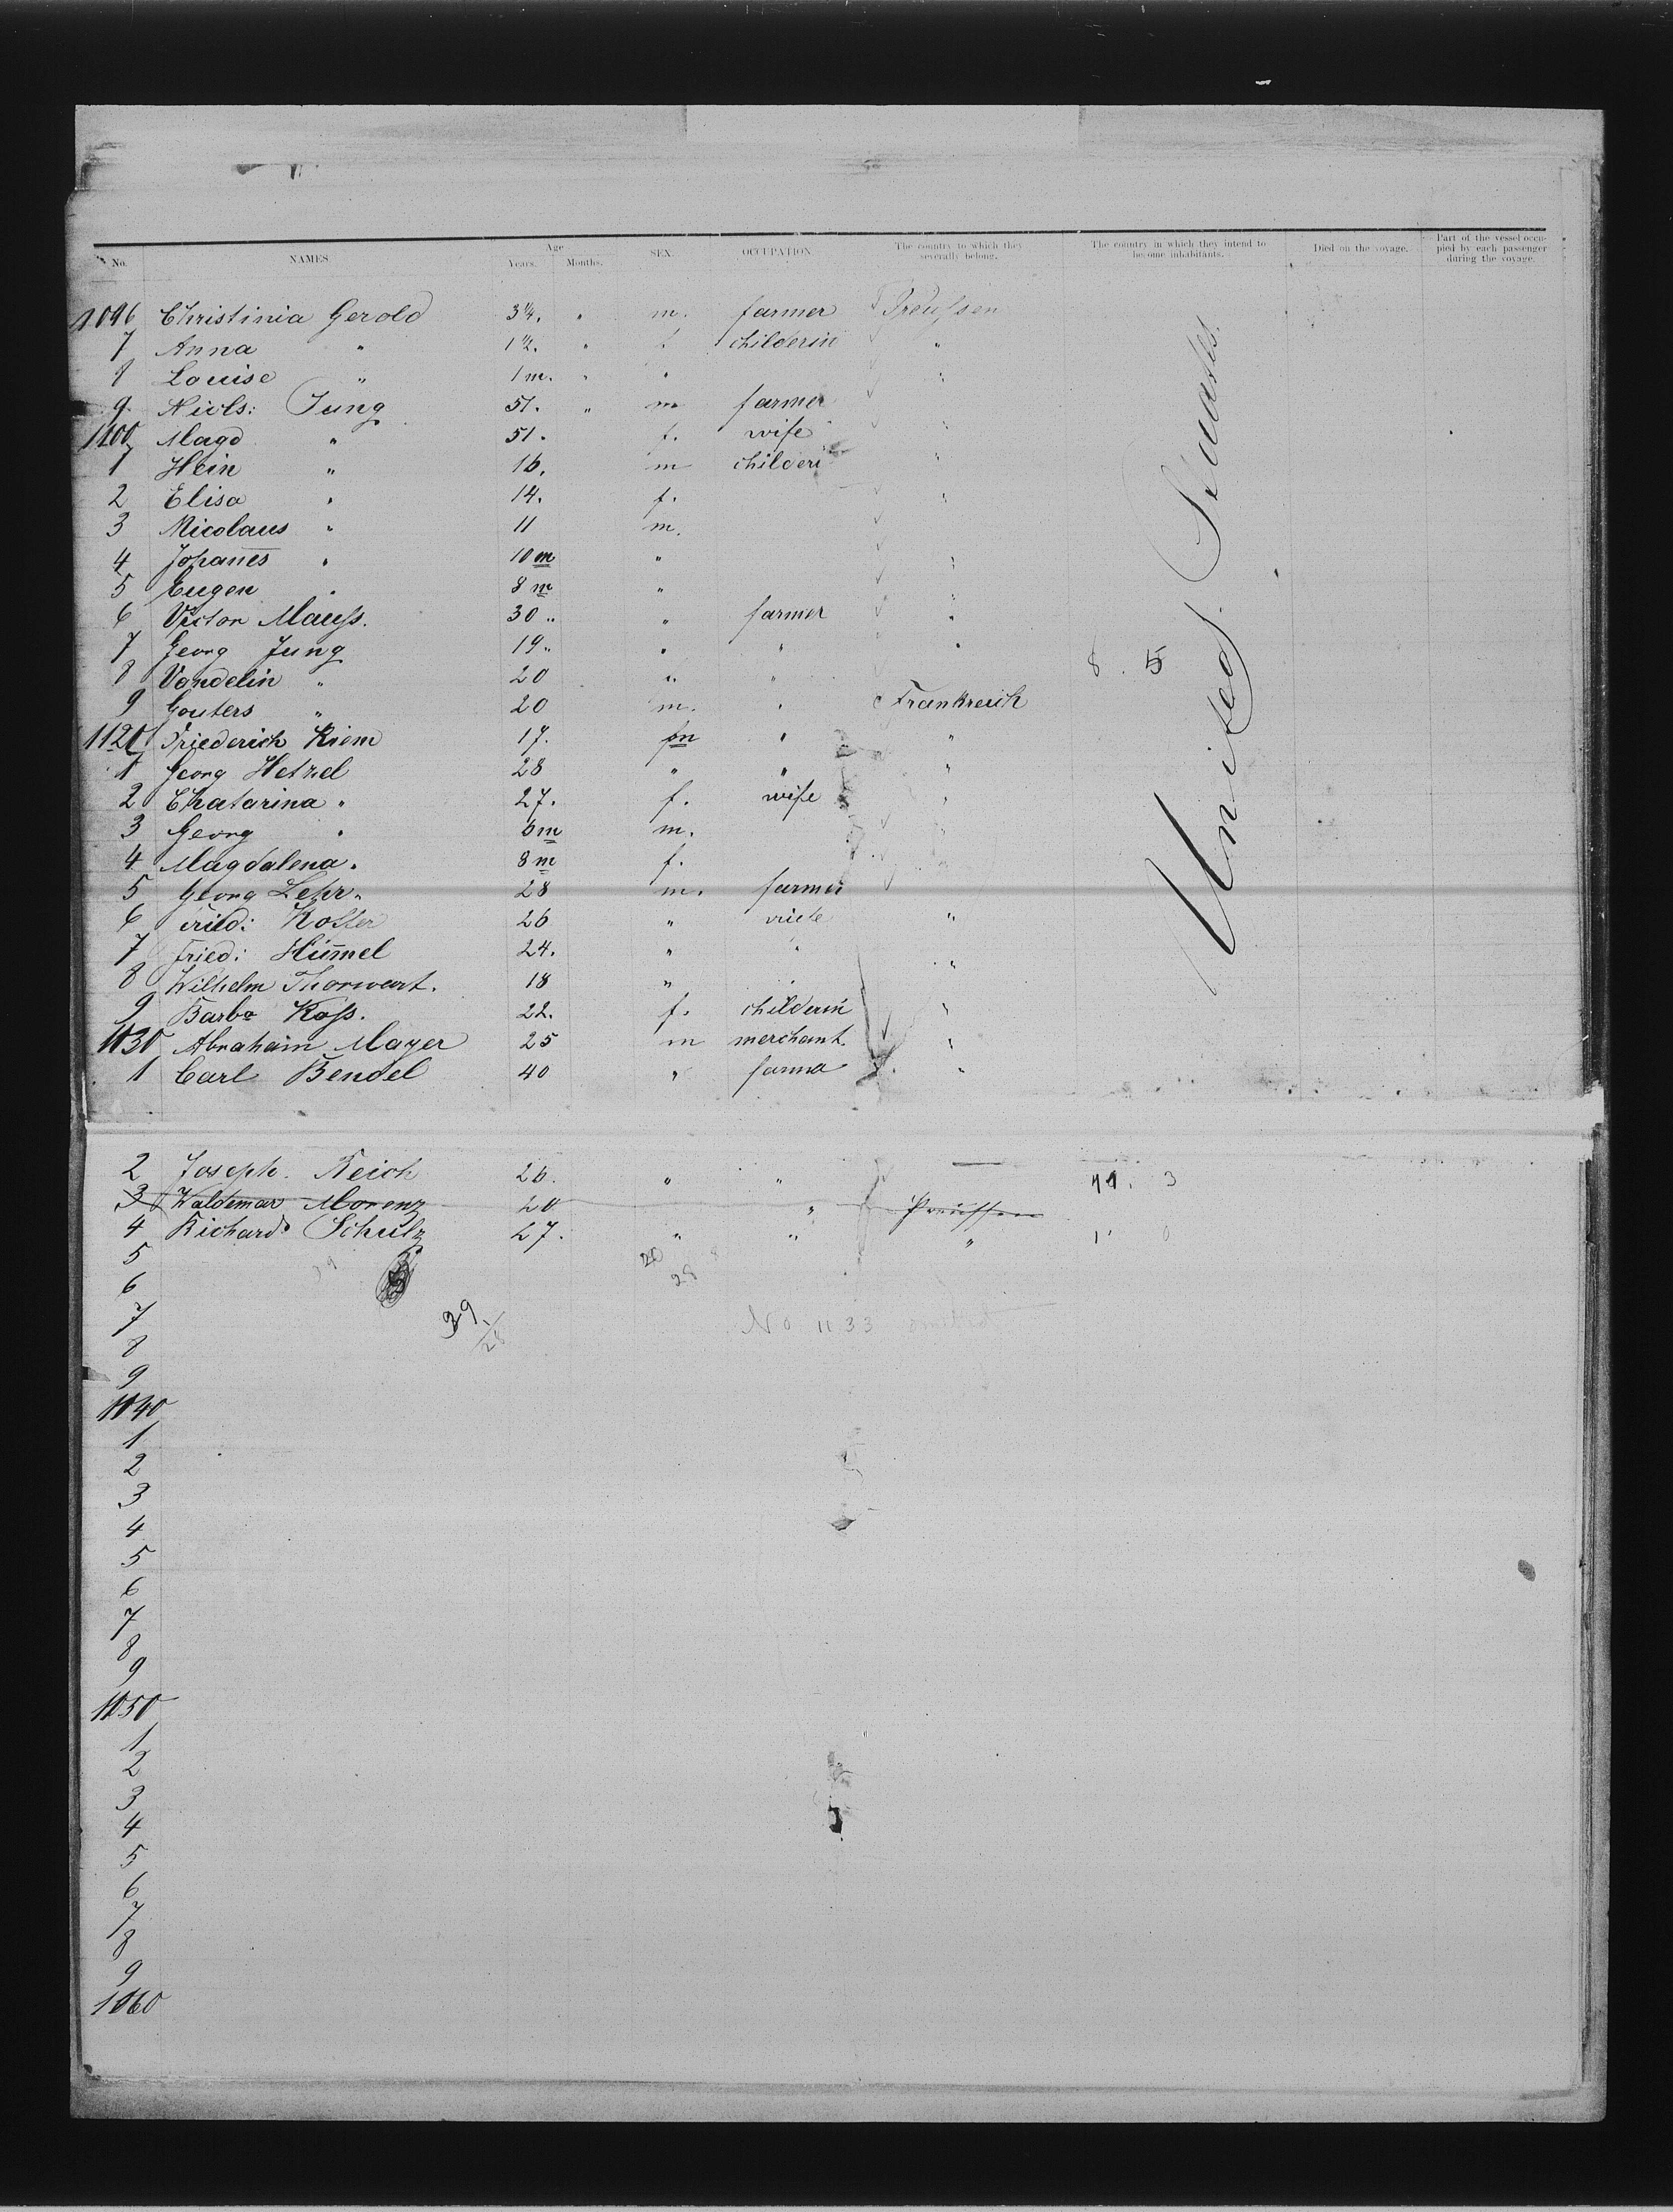 No. NAMES Age Years. Months. SEX. OCCUPATION The country to which they severally belong. The country in which they intend to become inhabitants. Died on the voyage. Part of the vessel occupied by each passenger during the voyage.
1096 Christinia Gerold 3¼. " m. farmer Preußen
7 Anna " 1½. " f childerin "
8 Louise " 1 m. " " "
9 Nicls: Jung 51. " m farmer
1100 Magd " 51. f. wife "
1 Hein " 16. m childeri "
2 Elisa " 14. f. "
3 Nicolaus " 11 m.
4 Johanes " 10 m " "
5 Eugen " 8 m " "
6 Victor Mauß. 30 " " farmer "
7 Georg Jung 19 " " " "
8 Vandelin " 20 " " 8. 5
9 Gouters " 20 m. " Frankreich
1120 Friederich Kiem 17. m " "
1 Georg Hetzel 28 " " "
2 Chatarina " 27. f. wife "
3 Georg " 6 m m. "
4 Magdalena " 8 m f.
5 Georg Lehr. 28 m. farmer
6 Fried: Koller 26 " "
7 Fried: Himmel 24. " "
8 Wilhelm Thorwart. 18 " " "
9 Barba Koß. 22. f. childerin "
1030 Abraham Mayer 25 m merchant. "
1 Carl Bendel 40 " farma "
United States.
2 Joseph. Reich 26. " " — 11. 3
3 Waldemar Morenz 20 " Preussen
4 Richard Schulz 27. " " " 1. 0
5 20 8
6 28
7 39/28 No 1133 omitted
8
9
1040
1
2
3
4
5
6
7
8
9
1050
1
2
3
4
5
6
7
8
9
1060